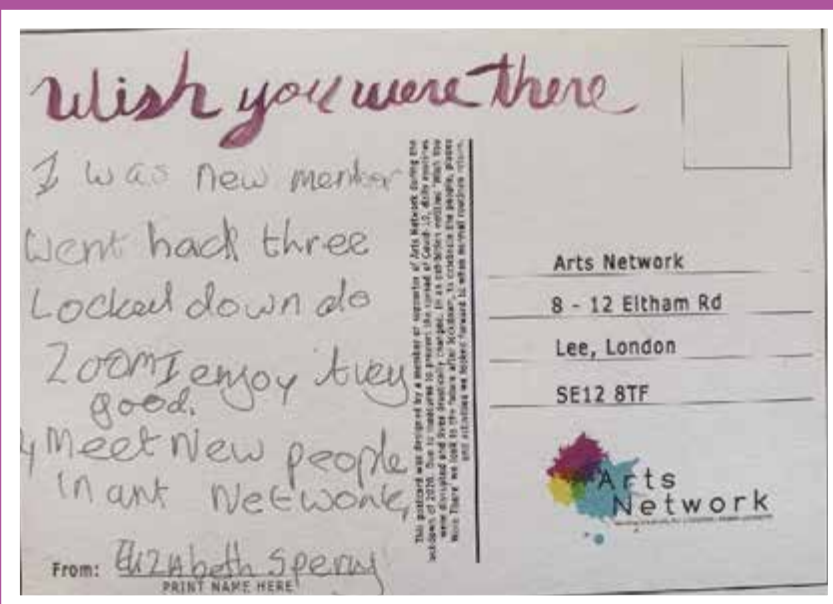 Wish you were there
I was new member
Went back three
Locked down do
Zoom I enjoy it very
good.
Meet New people
in art Network,
From: Elizabeth
PRINT NAME HERE
This postcard was designed by a member or supporter of Arts Network during the
lockdown of 2020. Due to measures to prevent the spread of Covid-19, daily routines
were disrupted and lives drastically changed. In an exhibition entitled 'Wish You
Were There' we look to the future after lockdown, to celebrate the people, places
and activities we looked forward to when normal routines return.
Arts Network
8 - 12 Eltham Rd
Lee, London
SE12 8TF
Arts
Network